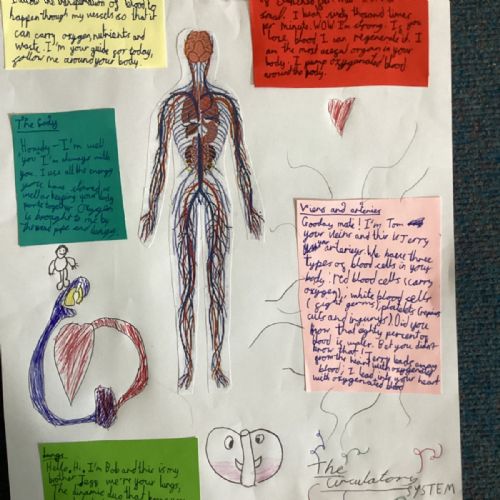 through my vessels so that it
can carry oxygen, nutrients and
waste. I'm your guide for today,
follow me around your body.
small. I beat sixty thousand times
per minute. WOW I'm strong. If you
lose blood I can regenerate it. I
am the most useful organ in your
body. I pump oxygenated blood
around the body.
The body
Howdy - I'm well
you I'm always with
you. I use all the energy
you have stored, as
well as keeping your body
parts together. Oxygen
is brought to me by
and lungs.
Viens and arteries
Gooday mate! I'm Tom
your veins and this is Jerry
your arteries. We have three
types of blood cells in your
body: red blood cells (carry
oxygen), white blood cells
(fight germs), platelets (repairs
cuts and injurys). Did you
know that eighty percent of
blood is water. Bet you didn't
know that! Jerry leads away
from the heart with oxygenated
blood; I lead into your heart
with oxygenated blood
Lungs
Hello, Hi, I'm Bob and this is my
brother Jazz we're your lungs,
The dynamic duo that
The
Circulatory
SYSTEM